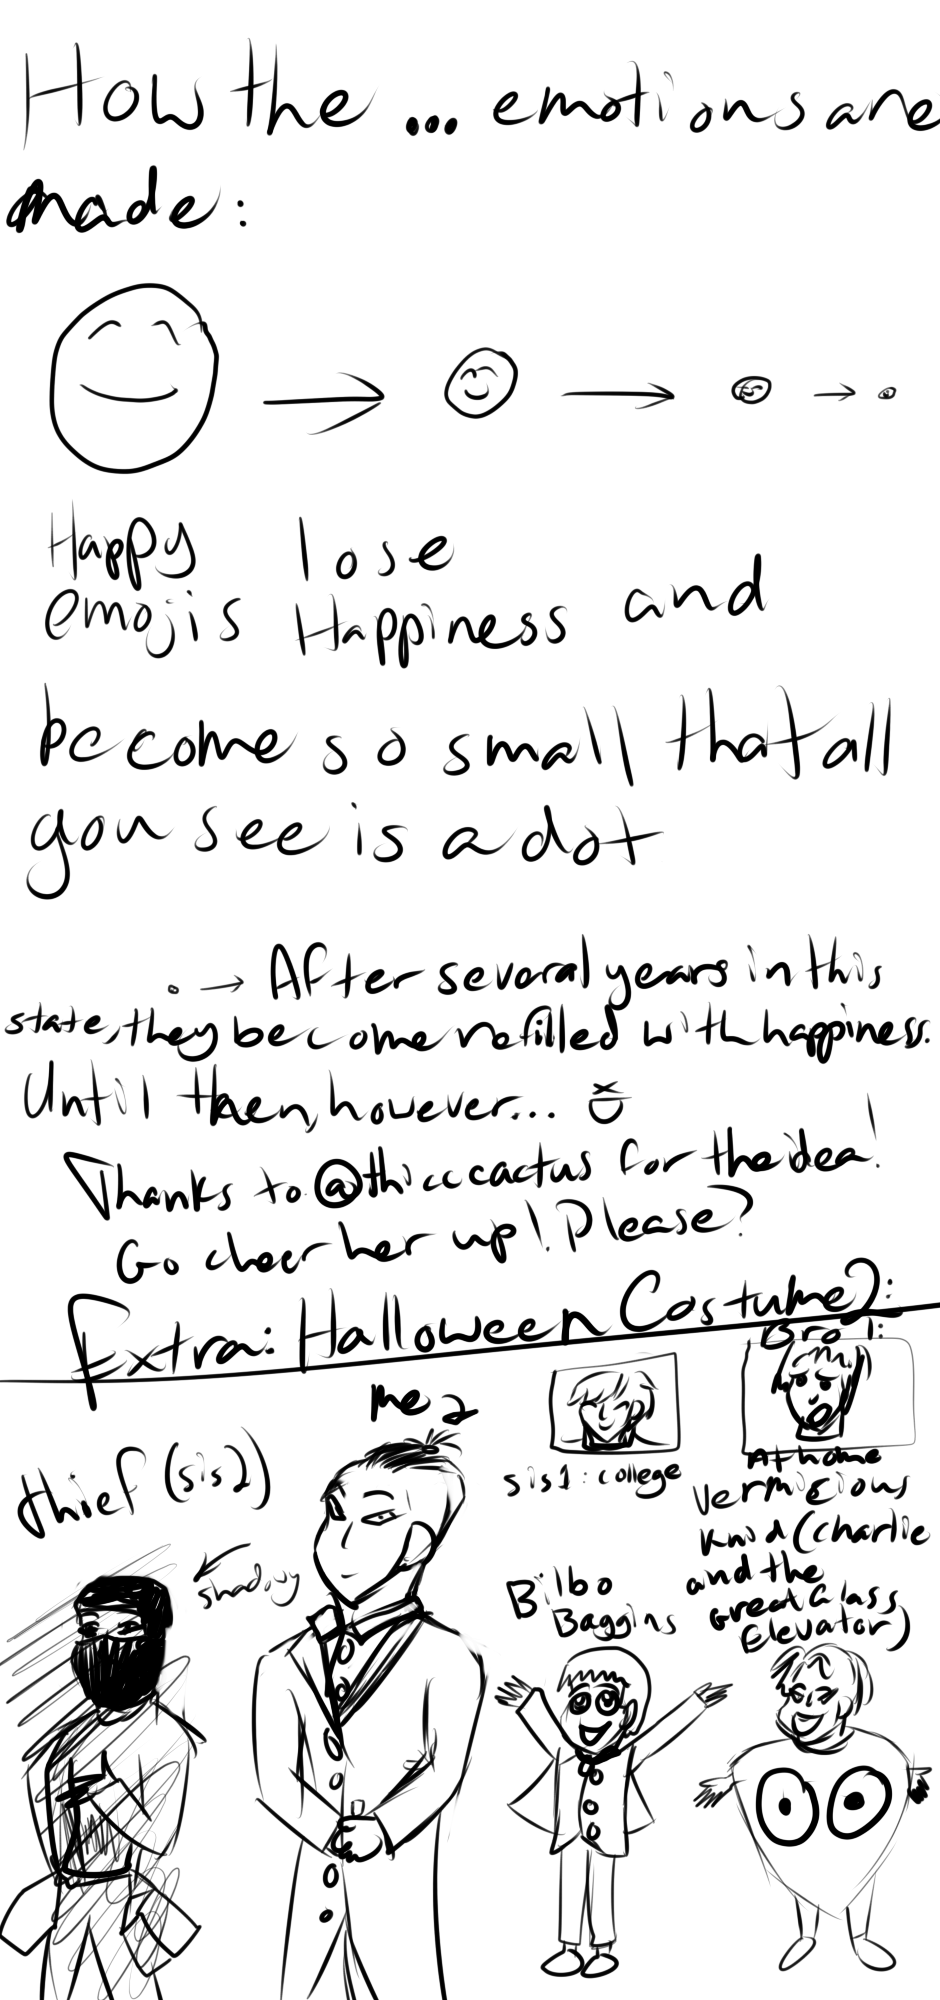 How the ... emotions are
made:
Happy lose
emojis Happiness and
become so small that all
you see is a dot
. → After several years in this
state, they become refilled with happiness.
Until then, however...
Thanks to @thicccactus for the idea!
Go cheer her up! Please?
Extra: Halloween Costume):
Bro 1:
me
sis1: college
At home
thief (sis2)
shadowy
Vermicious
Knid (Charlie
and the
Great Glass
Elevator)
Bilbo
Baggins